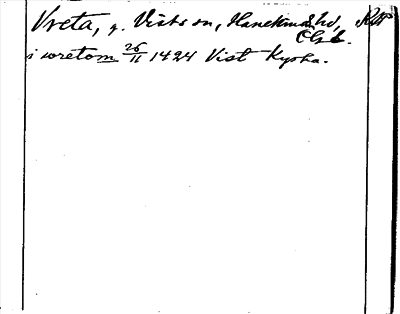 Vreta, g. Vists sn, Hanekinds hd,
Ög.
i wretom 26/11 1424 Vist Kyrka.